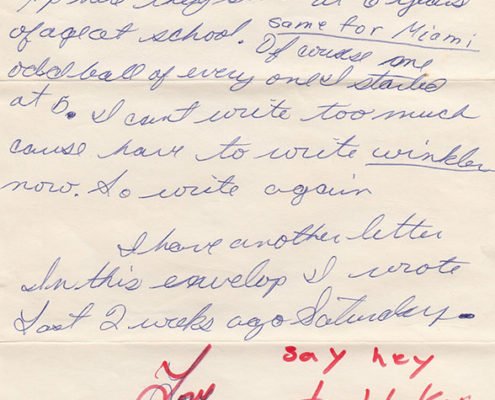 at 6 years
of age at school. same for Miami
Of course me
oddball of every one I started
at 5. I cant write too much
cause have to write winkler
now. So write again
I have another letter
In this envelop I wrote
Last 2 weks ago Saturday.
say hey